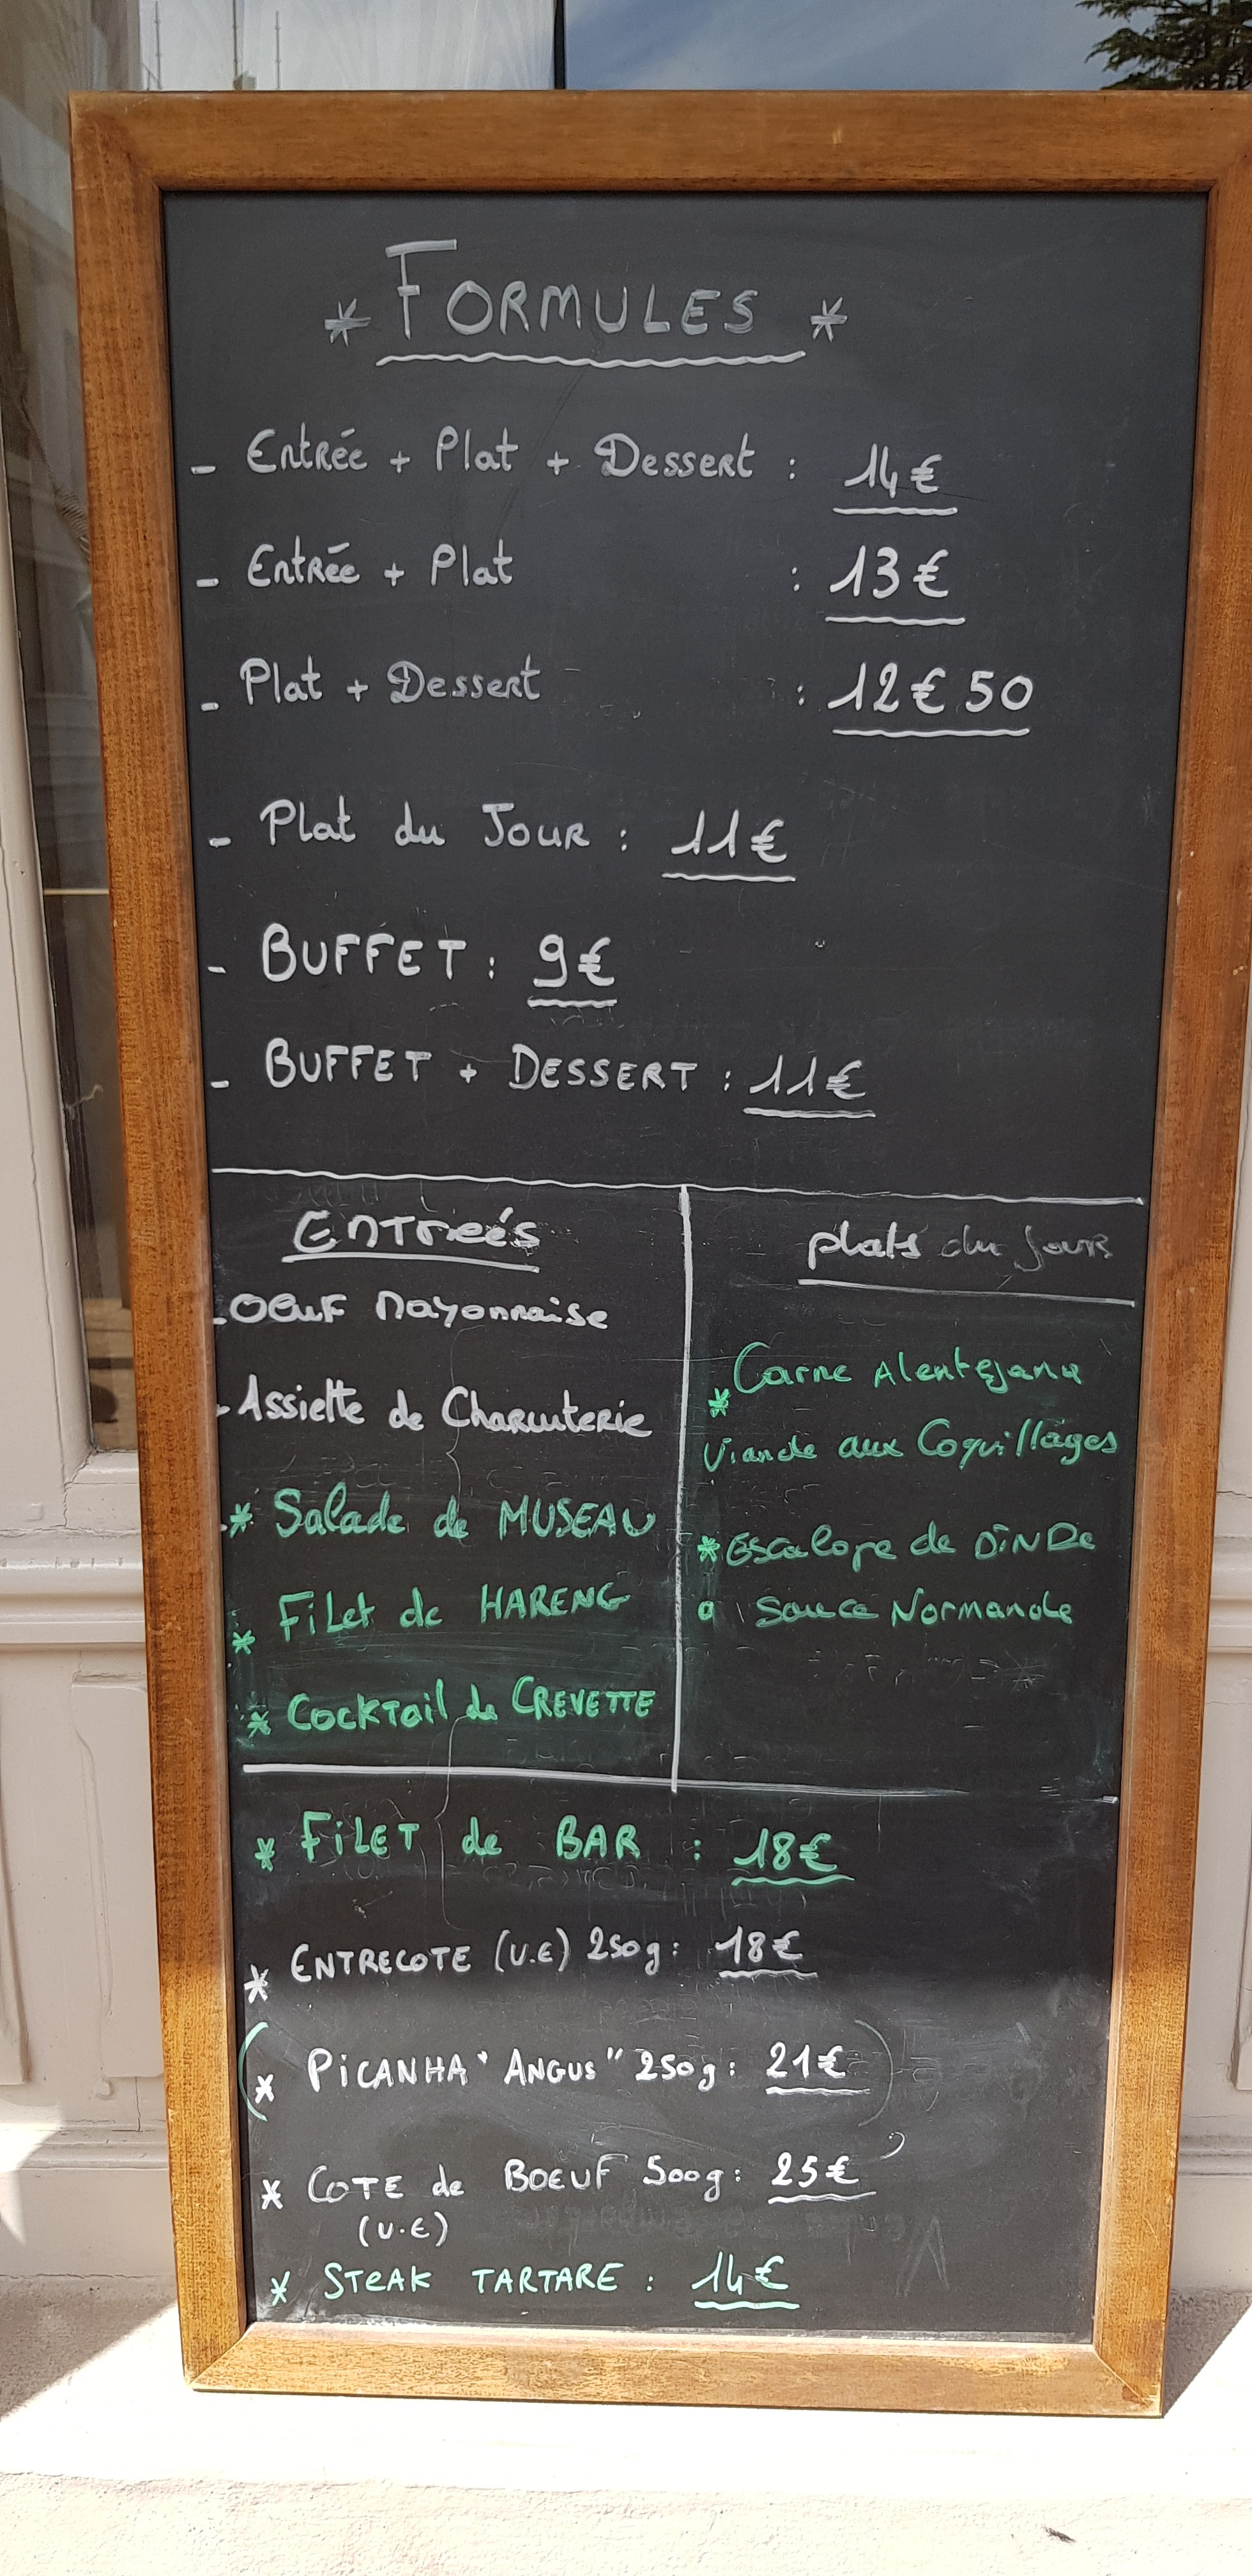 * FORMULES *
- Entrée + Plat + Dessert : 14€
- Entrée + Plat : 13€
- Plat + Dessert : 12€50
- Plat du Jour : 11€
- BUFFET : 9€
- BUFFET + DESSERT : 11€
Entreés
- Oeuf Mayonnaise
- Assiette de Charcuterie
* Salade de MUSEAU
* Filet de HARENG
* Cocktail de CREVETTE
plats du jours
* Carne Alentejana
Viande aux Coquillages
* Escalope de DINDe
Sauce Normande
* FiLET de BAR : 18€
* ENTRECOTE (U.E) 250g : 18€
(* PiCANHA "ANGUS" 250g : 21€)
* COTE de BOEUF 500g : 25€
(U.E)
* STEAK TARTARE : 14€